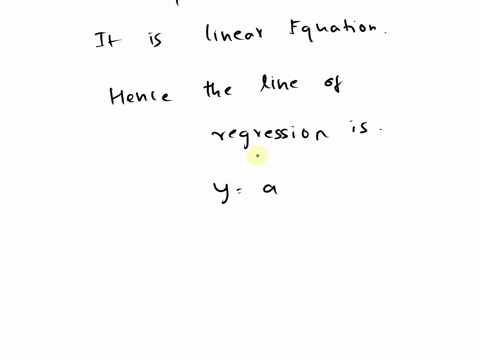 It is linear Equation.
Hence the line of
regression is.
y = a